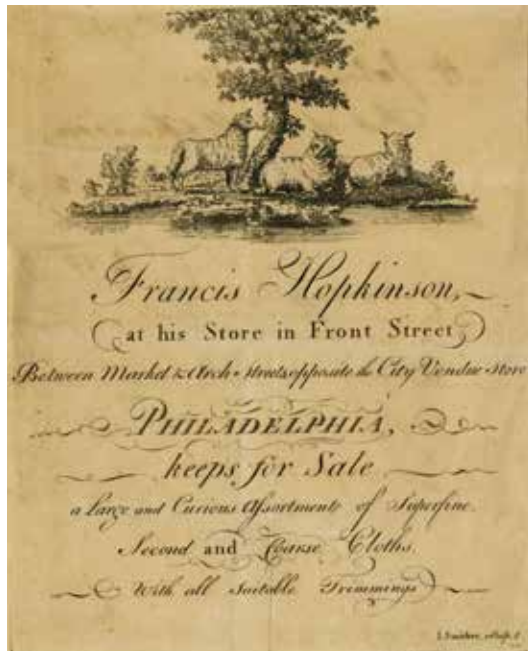 Francis Hopkinson,
at his Store in Front Street
Between Market & Arch-streets, opposite the City Vendue Store
PHILADELPHIA,
keeps for Sale
a Large and Curious Assortment of Superfine
Second and Coarse Cloths.
With all Suitable Trimmings